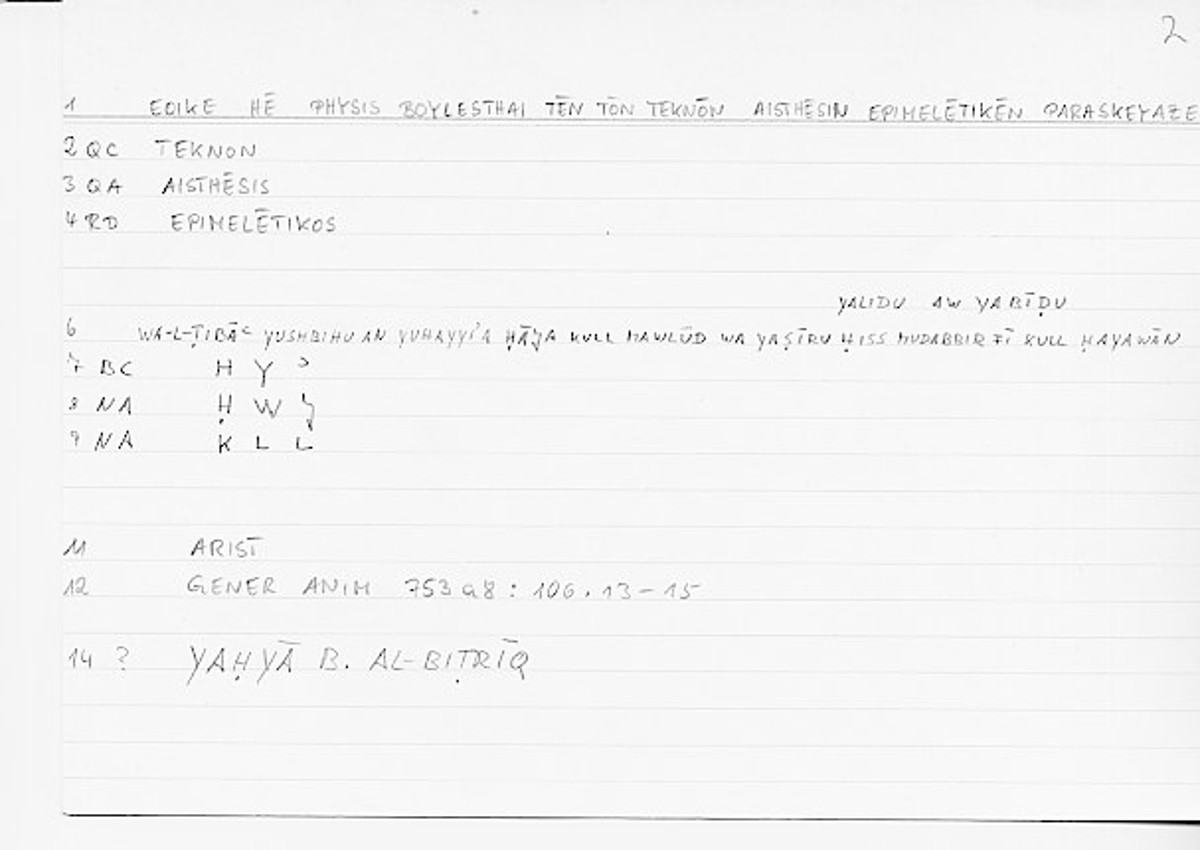 2
1 EOIKE HĒ PHYSIS BOYLESTHAI TĒN TŌN TEKNŌN AISTHĒSIN EPIMELĒTIKĒN PARASKEYAZE
2 QC TEKNON
3 QA AISTHĒSIS
4 RD EPIMELĒTIKOS
YALIDU AW YABĪḌU
6 WA-L-ṬIBĀʿ YUSHBIHU AN YUHAYYIʾA ḤĀǦA KULL MAWLŪD WA YAṢĪRU ḤISS MUDABBIR FĪ KULL ḤAYAWĀN
7 BC H Y ʾ
8 NA Ḥ W Ǧ
9 NA K L L
11 ARIST
12 GENER ANIM 753 a8 : 106.13-15
14 ? YAḤYĀ B. AL-BIṬRĪQ